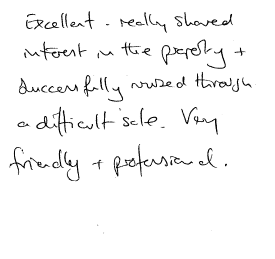 Excellent - really showed
interest in the property +
successfully nursed through
a difficult sale. Very
friendly + professional.